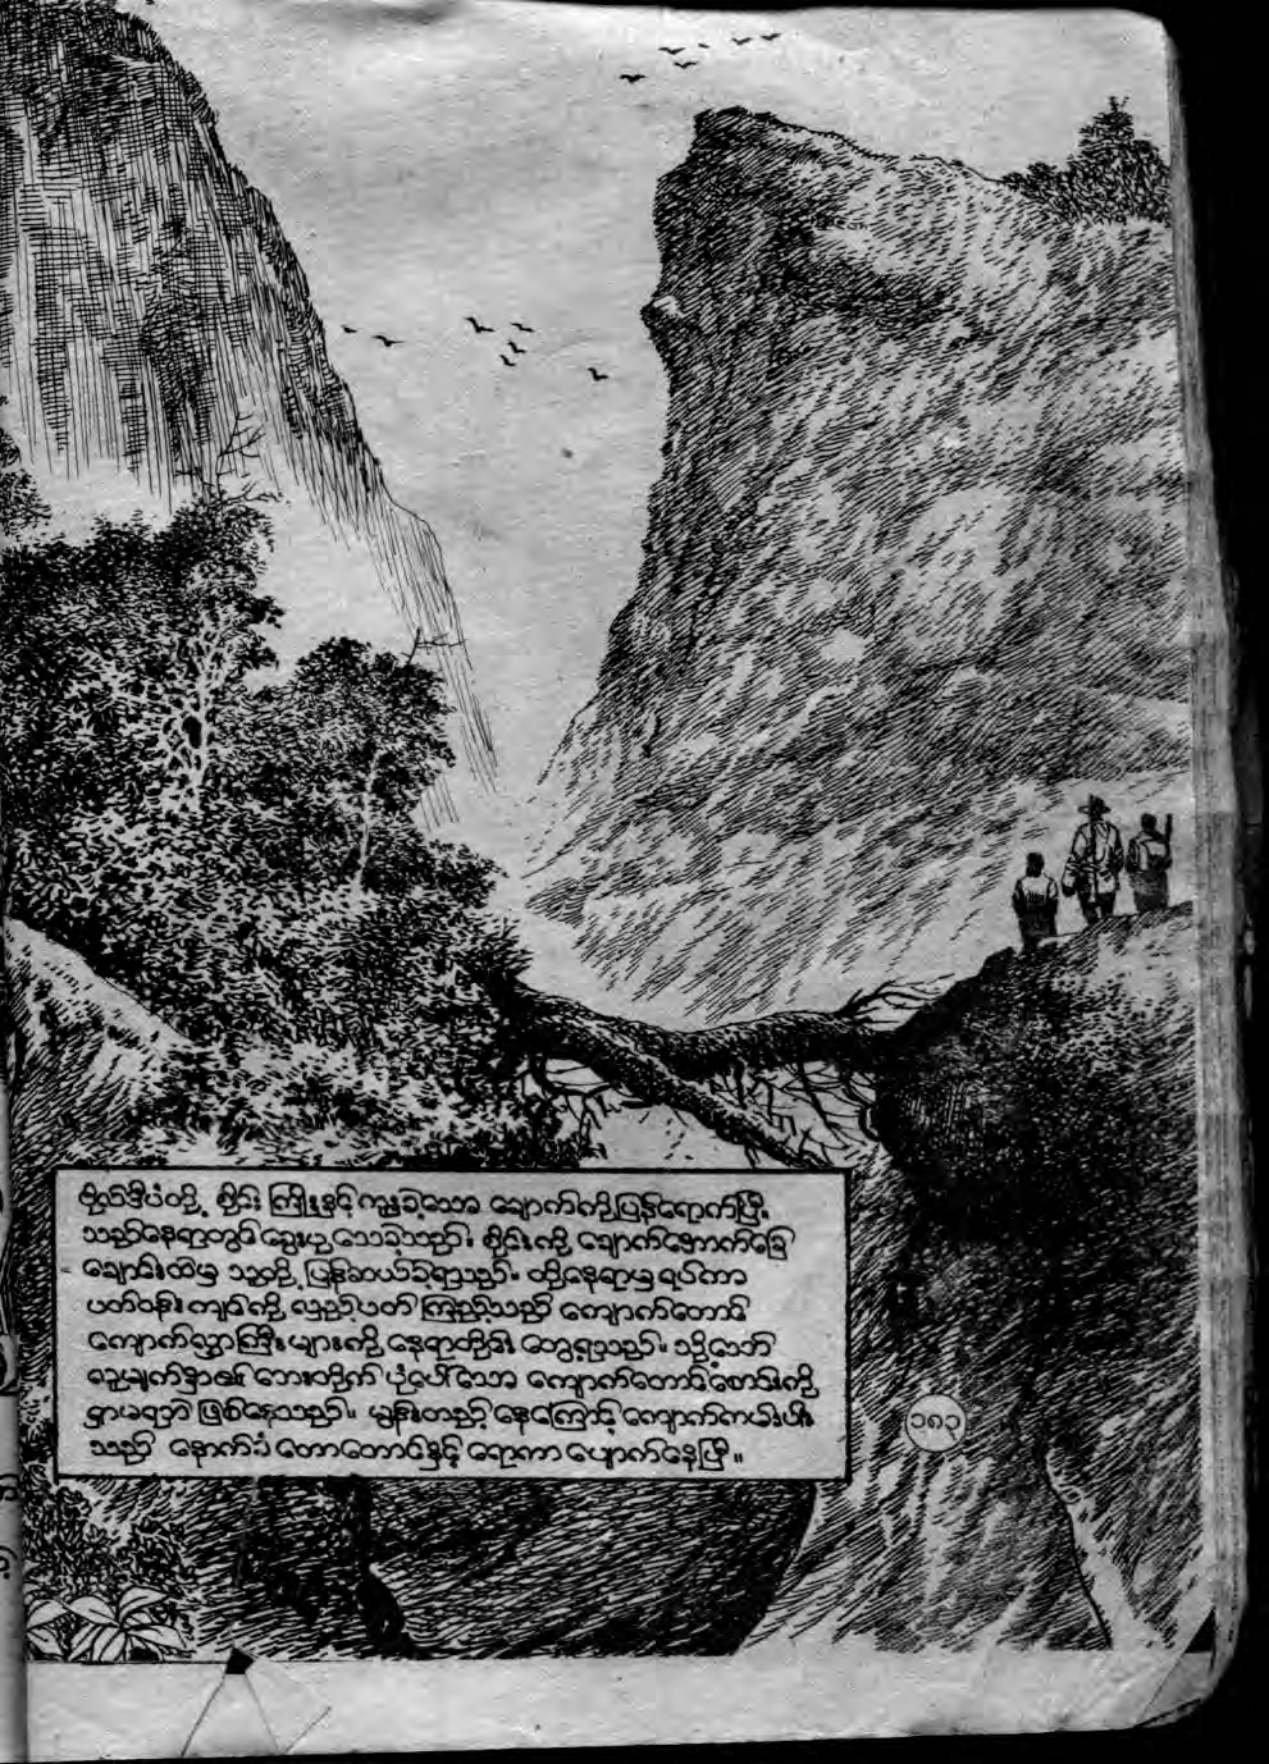 ဗိုလ်ဒီပံတို့ စိုင်း ကြိုးနှင့် ကူးခဲ့သော ချောက်ကို ပြန်ရောက်ပြီ၊
သည်နေရာတွင် ခွေးယူ သေခဲ့သည်။ စိုင်းကို ချောက်အောက်ခြေ
ချောင်းထဲမှ သူတို့ ပြန်ဆယ်ခဲ့ရသည်။ ထိုနေရာမှ ရပ်ကာ
ပတ်ဝန်းကျင်ကို လှည့်ပတ် ကြည့်သည် ကျောက်တောင်
ကျောက်လွှာကြီးများကို နေရာတိုင်း တွေ့ရသည်။ သို့သော်
လူမျက်နှာ၏ ဘေးတိုက် ပုံပေါ်သော ကျောက်တောင်စောင်းကို
ရှာမရဘဲ ဖြစ်နေသည်။ မွန်းတည့်နေကြောင့် ကျောက်ကမ်းပါး
သည် နောက်ခံ တောတောင်နှင့် ရောကာ ပျောက်နေပြီ။
၁၈၃